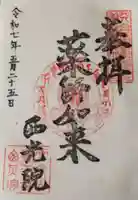 奉拝
薬師如来
西光院
令和七年五月二十五日